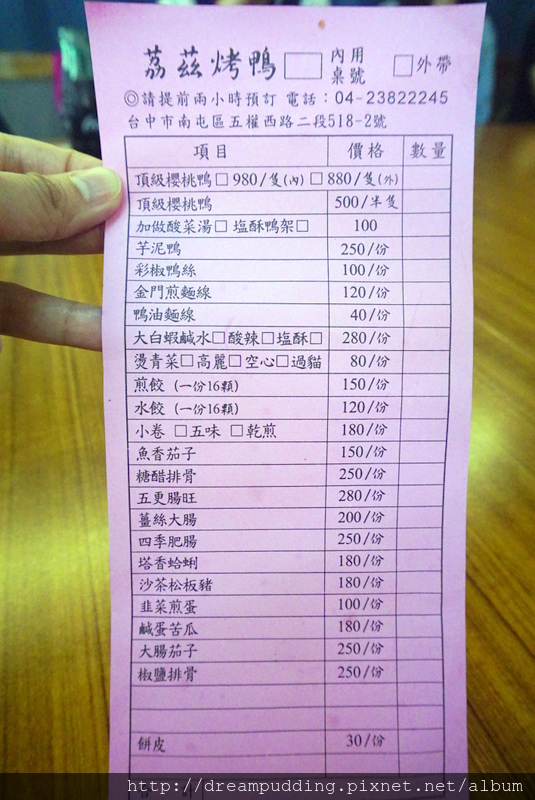 荔茲烤鴨 □ 內用桌號 □外帶
◎請提前兩小時預訂 電話：04-23822245
台中市南屯區五權西路二段518-2號
項目 價格 數量
頂級櫻桃鴨□980/隻(內) □880/隻(外)
頂級櫻桃鴨 500/半隻
加做酸菜湯□ 塩酥鴨架□ 100
芋泥鴨 250/份
彩椒鴨絲 100/份
金門煎麵線 120/份
鴨油麵線 40/份
大白蝦鹹水□酸辣□塩酥□ 280/份
燙青菜□高麗□空心□過貓 80/份
煎餃 (一份16顆) 150/份
水餃 (一份16顆) 120/份
小卷 □五味 □乾煎 180/份
魚香茄子 150/份
糖醋排骨 250/份
五更腸旺 280/份
薑絲大腸 200/份
四季肥腸 250/份
塔香蛤蜊 180/份
沙茶松板豬 180/份
韭菜煎蛋 100/份
鹹蛋苦瓜 180/份
大腸茄子 250/份
椒鹽排骨 250/份
餅皮 30/份
http://dreampudding.pixnet.net/album